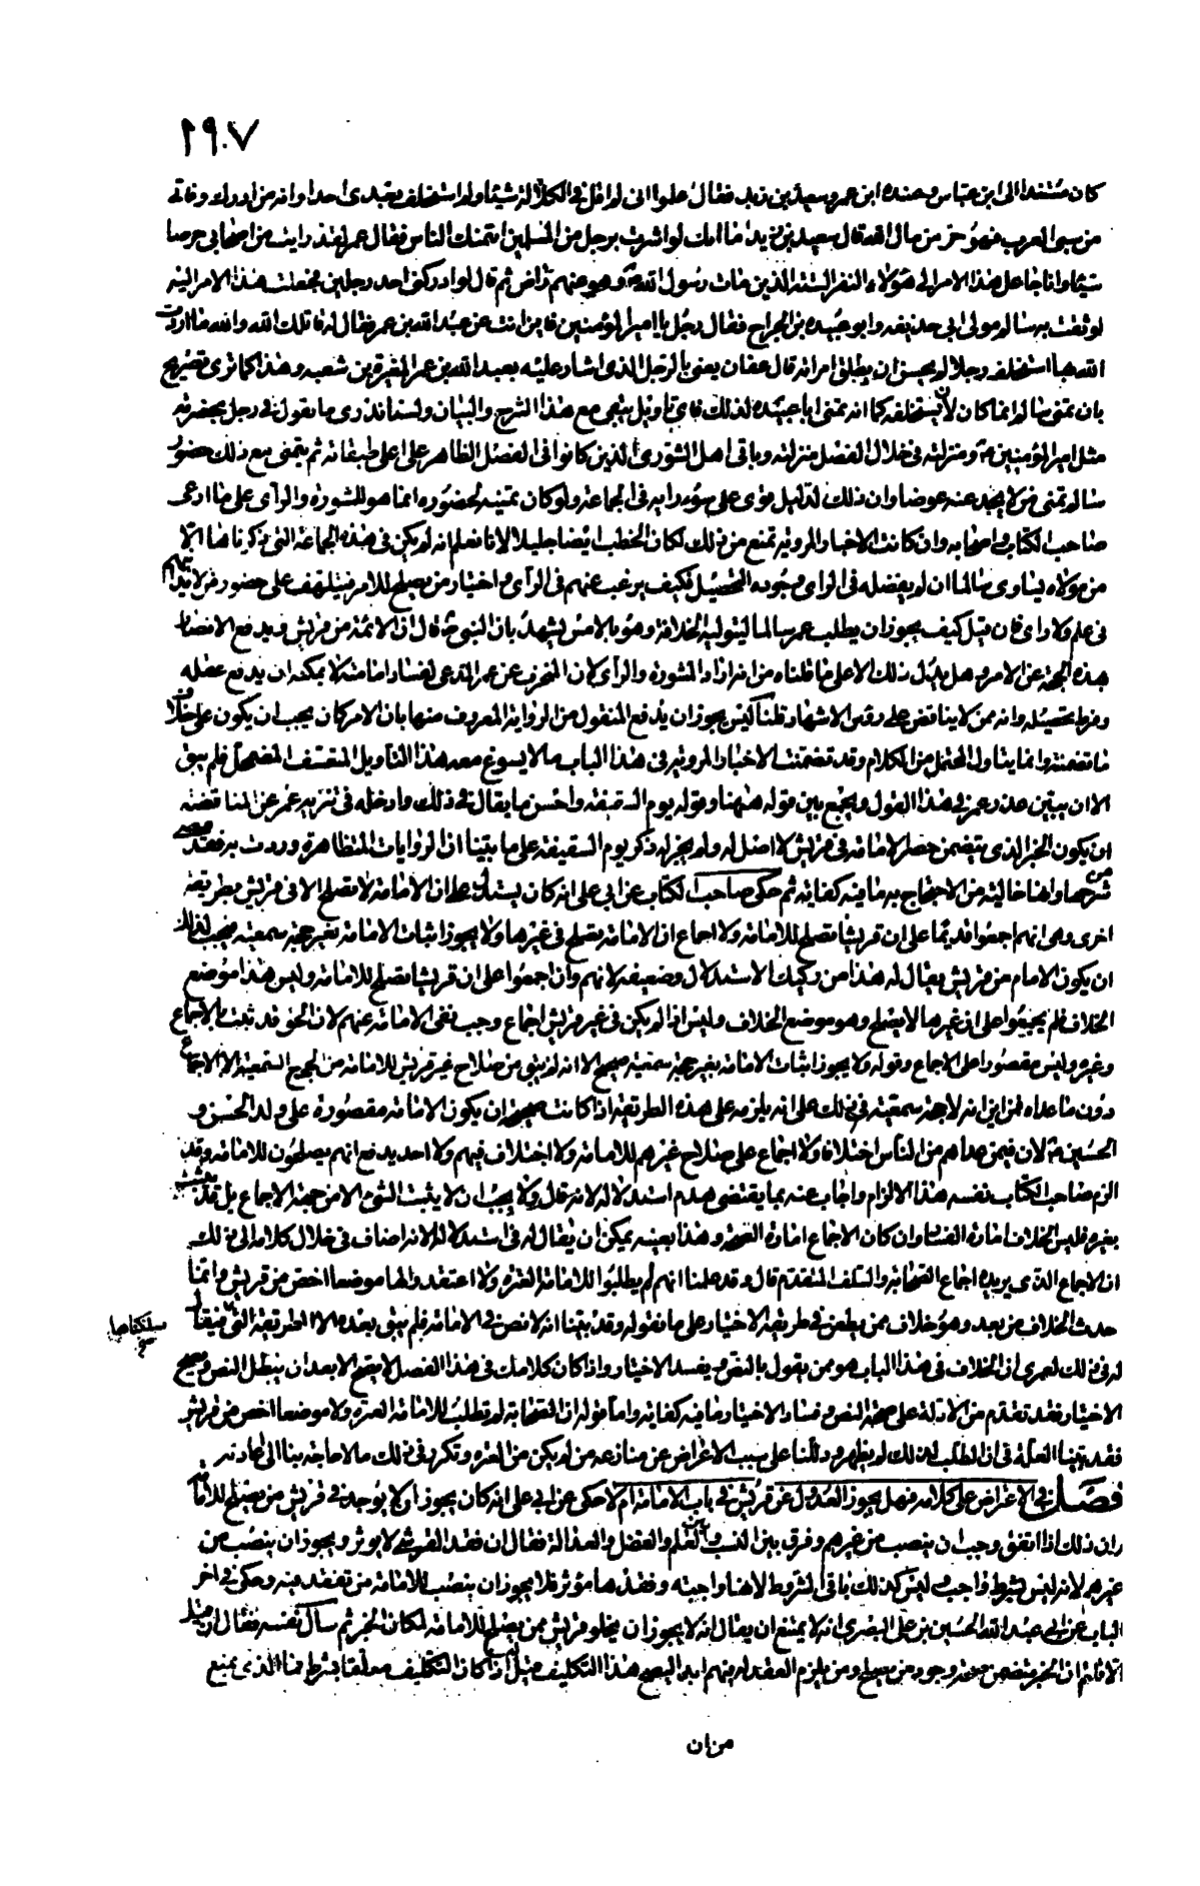 ٢٩٠٧
كان مستندا الى ابن عباس وعنده ابن عمر وسعيد بن زيد فقال اعلموا انى لم اقل فى الكلالة شيئا ولم استخلف بعدى احدا وانه من ادرك وفاتى
من سبى العرب فهو حر من مال الله قال سعيد بن زيد اما انك لو اشرت برجل من المسلمين ائتمنك الناس فقال عمر لقد رايت من اصحابى حرصا
سيئا وانا جاعل هذا الامر الى هؤلاء النفر الستة الذين مات رسول الله وهو عنهم راض ثم قال لو ادركنى احد رجلين لجعلت هذا الامر اليه
لوثقت به سالم مولى ابى حذيفه وابو عبيده بن الجراح فقال رجل يا امير المؤمنين فاين انت عن عبد الله بن عمر فقال له قاتلك الله والله ما اردت
الله بها استخلف رجلا لم يحسن ان يطلق امراته قال عفان يعنى بالرجل الذى اشار عليه بعبد الله بن عمر المغيرة بن شعبه وهذا كما ترى تصريح
بان تمنى سالم انما كان لان يستخلفه كما انه تمنى ابا عبيده لذلك فاى تاويل يبقى مع هذا الشرح والبيان ولسنا ندرى ما يقول فى رجل بحضرته
مثل امير المؤمنين ومنزلته فى خلال الفضل منزلته وباقى اهل الشورى الذين كانوا فى الفضل الظاهر على اعلى طبقاته ثم يتمنى مع ذلك حضور
سالم تمنى من لا يجد عنه عوضا وان ذلك لدليل قوى على سوء رايه فى الجماعة ولو كان تمنيه لحضوره انما هو للمشورة والرأى على ما ادعى
صاحب الكتاب واصحابه وان كانت الاخبار المروية تمنع من ذلك لكان الخطب ايضا جليلا لانا نعلم انه لم يكن فى هذه الجماعة التى ذكرناها الا
من هو لا يساوى سالما ان لم يفضله فى الراى وجوده التحصيل فكيف يرغب عنهم فى الرأى واختيار من يصلح للامر فيتلهف على حضور من لا يدانيهم
فى علم ولا راى فان قيل كيف يجوز ان يطلب عمر سالما ليتوليه الخلافة وهو بالامس يشهد بان النبى قال ان الائمة من قريش ويدفع الانصار
بهذه الحجة عن الامر وهل يدل ذلك الا على ما قلناه من انه اراد المشورة والرأى لان المنحرف عن عمر المدعى لفساد امامته لا يمكنه ان يدفع عقله
وفرط تحصيله وانه ممن لا يناقض على رؤس الاشهاد قلنا ليس يجوز ان يدفع المنقول من الرواية المعروف منها بان الامر كان يجب ان يكون على خلاف
ما تضمنته وانما يتاول المحتمل من الكلام وقد تضمنت الاخبار المروية فى هذا الباب ما لا يسوغ معه هذا التأويل المتعسف المضمحل فلم يبق
الا ان يبين عذر عمر فى هذا القول ويجمع بين قوله ههنا وقوله يوم السقيفه واحسن ما يقال فى ذلك وادخله فى تنزيه عمر عن المناقضه
ان يكون الخبر الذى يتضمن حصر الامامة فى قريش لا اصل له ولم يجر له ذكر يوم السقيفه على ما بينا ان الروايات المتظاهرة وردت به فقصد
شرحها وانها خالية من الاحتجاج به ما فيه كفاية ثم حكى صاحب الكتاب عن ابى على انه كان يستدل على ان الامامة لا تصلح الا فى قريش بطريقه
اخرى وهى انهم اجمعوا قديما على ان قريشا تصلح للامامة ولا اجماع ان الامامة تصلح فى غيرها ولا يجوز اثبات الامامة بغير حجة سمعية فيجب لذلك
ان يكون الامام من قريش يقال له هذا من ركيك الاستدلال وضعيفه لانهم وان اجمعوا على ان قريشا تصلح للامامة وليس هذا موضع
الخلاف فلم يجمعوا على ان غيرها لا يصلح وهو موضع الخلاف وليس اذا لم يكن فى غير قريش اجماع وجب نفى الامامة عنهم لان الحق قد يثبت بالاجماع
وغيره وليس مقصورا على الاجماع وقوله ولا يجوز اثبات الامامة بغير حجة سمعية صحيح الا انه لم يبق من صلاح غير قريش للامامة من الحجج السمعية الا الاجماع
دون ما عداه فمن اين انه لا حجة سمعية فى ذلك على انه يلزمه على هذه الطريقة اذا كانت صحيحة ان يكون الامامة مقصورة على ولد الحسن و
الحسين لان فيمن عداهم من الناس اختلافا ولا اجماع على صلاح غيرهم للامامة ولا اختلاف فيهم ولا احد يدفع انهم يصلحون للامامة وقد
الزم صاحب الكتاب نفسه هذا الالزام واجاب عنه بما يقتضى هدم استدلاله لانه قال ولا يجب ان لا يثبت الشىء الا من جهة الاجماع بل قد يثبت
بغيره فليس الخلاف امارة الفساد وان كان الاجماع امارة الصحة وهذا بعينه يمكن ان يقال له فى استدلاله لانه اضاف فى خلال كلامه الى ذلك
ان الاجماع الذى يريده اجماع الصحابة والسلف المتقدم قال وقد علمنا انهم لم يطلبوا للامامة العترة ولا اعتقدوا لها موضعا اخص من قريش وانما
حدث الخلاف من بعد وهو خلاف ممن يطعن فى طريقة الاختيار على ما نقوله وقد بينا انه لا نص فى الامامة فلم يبق بعده الا الطريقة التى
سلكناها
له فى ذلك لعمرى ان الخلاف فى هذا الباب هو ممن يقول بالنص ويفسد الاختيار واذا كان كلامك فى هذا الفصل لا يصح الا بعد ان يبطل النص ويصح
الاختيار فقد تقدم من الادلة على صحة النص وفساد الاختيار ما فيه كفاية واما قوله ان الصحابة لم تطلب للامامة العترة ولا موضعا اخص من قريش
فقد بينا العلة فى ان الطلب لذلك لم يظهر ودللنا على سبب الاعراض عن منازعه من لم يكن من العترة وتكرر فى ذلك ما لا حاجة بنا الى اعادته
فصل فى الاعتراض على كلامه فى هل يجوز العدول عن قريش فى باب الامامة ام لا حكى عن ابى على انه كان يجوز ان لا يوجد فى قريش من يصلح للامامة
وان ذلك اذا اتفق وجب ان ينصب من غيرهم وفرق بين النسب وبين العلم والفضل والعدالة فقال ان فقد القرشى لا يوثر ويجوز ان ينصب من
غيرهم لانه ليس بشرط واجب وليس كذلك باقى الشروط لانها واجبة وفقدها مؤثر فلا يجوز ان ينصب للامامة من تفقد منه وحكى فى اخر
الباب عن ابى عبد الله الحسين بن على البصرى انه لا يمتنع ان يقال انه لا يجوز ان يخلو قريش ممن يصلح للامامة لمكان الخبر ثم سأل نفسه فقال
ان الخبر متضمن وجود من يصلح ومن يلزم العقد له منهم ابدا ليصح هذا التكليف قيل اذا كان التكليف معلقا بشرط فما الذى يمنع
من ان